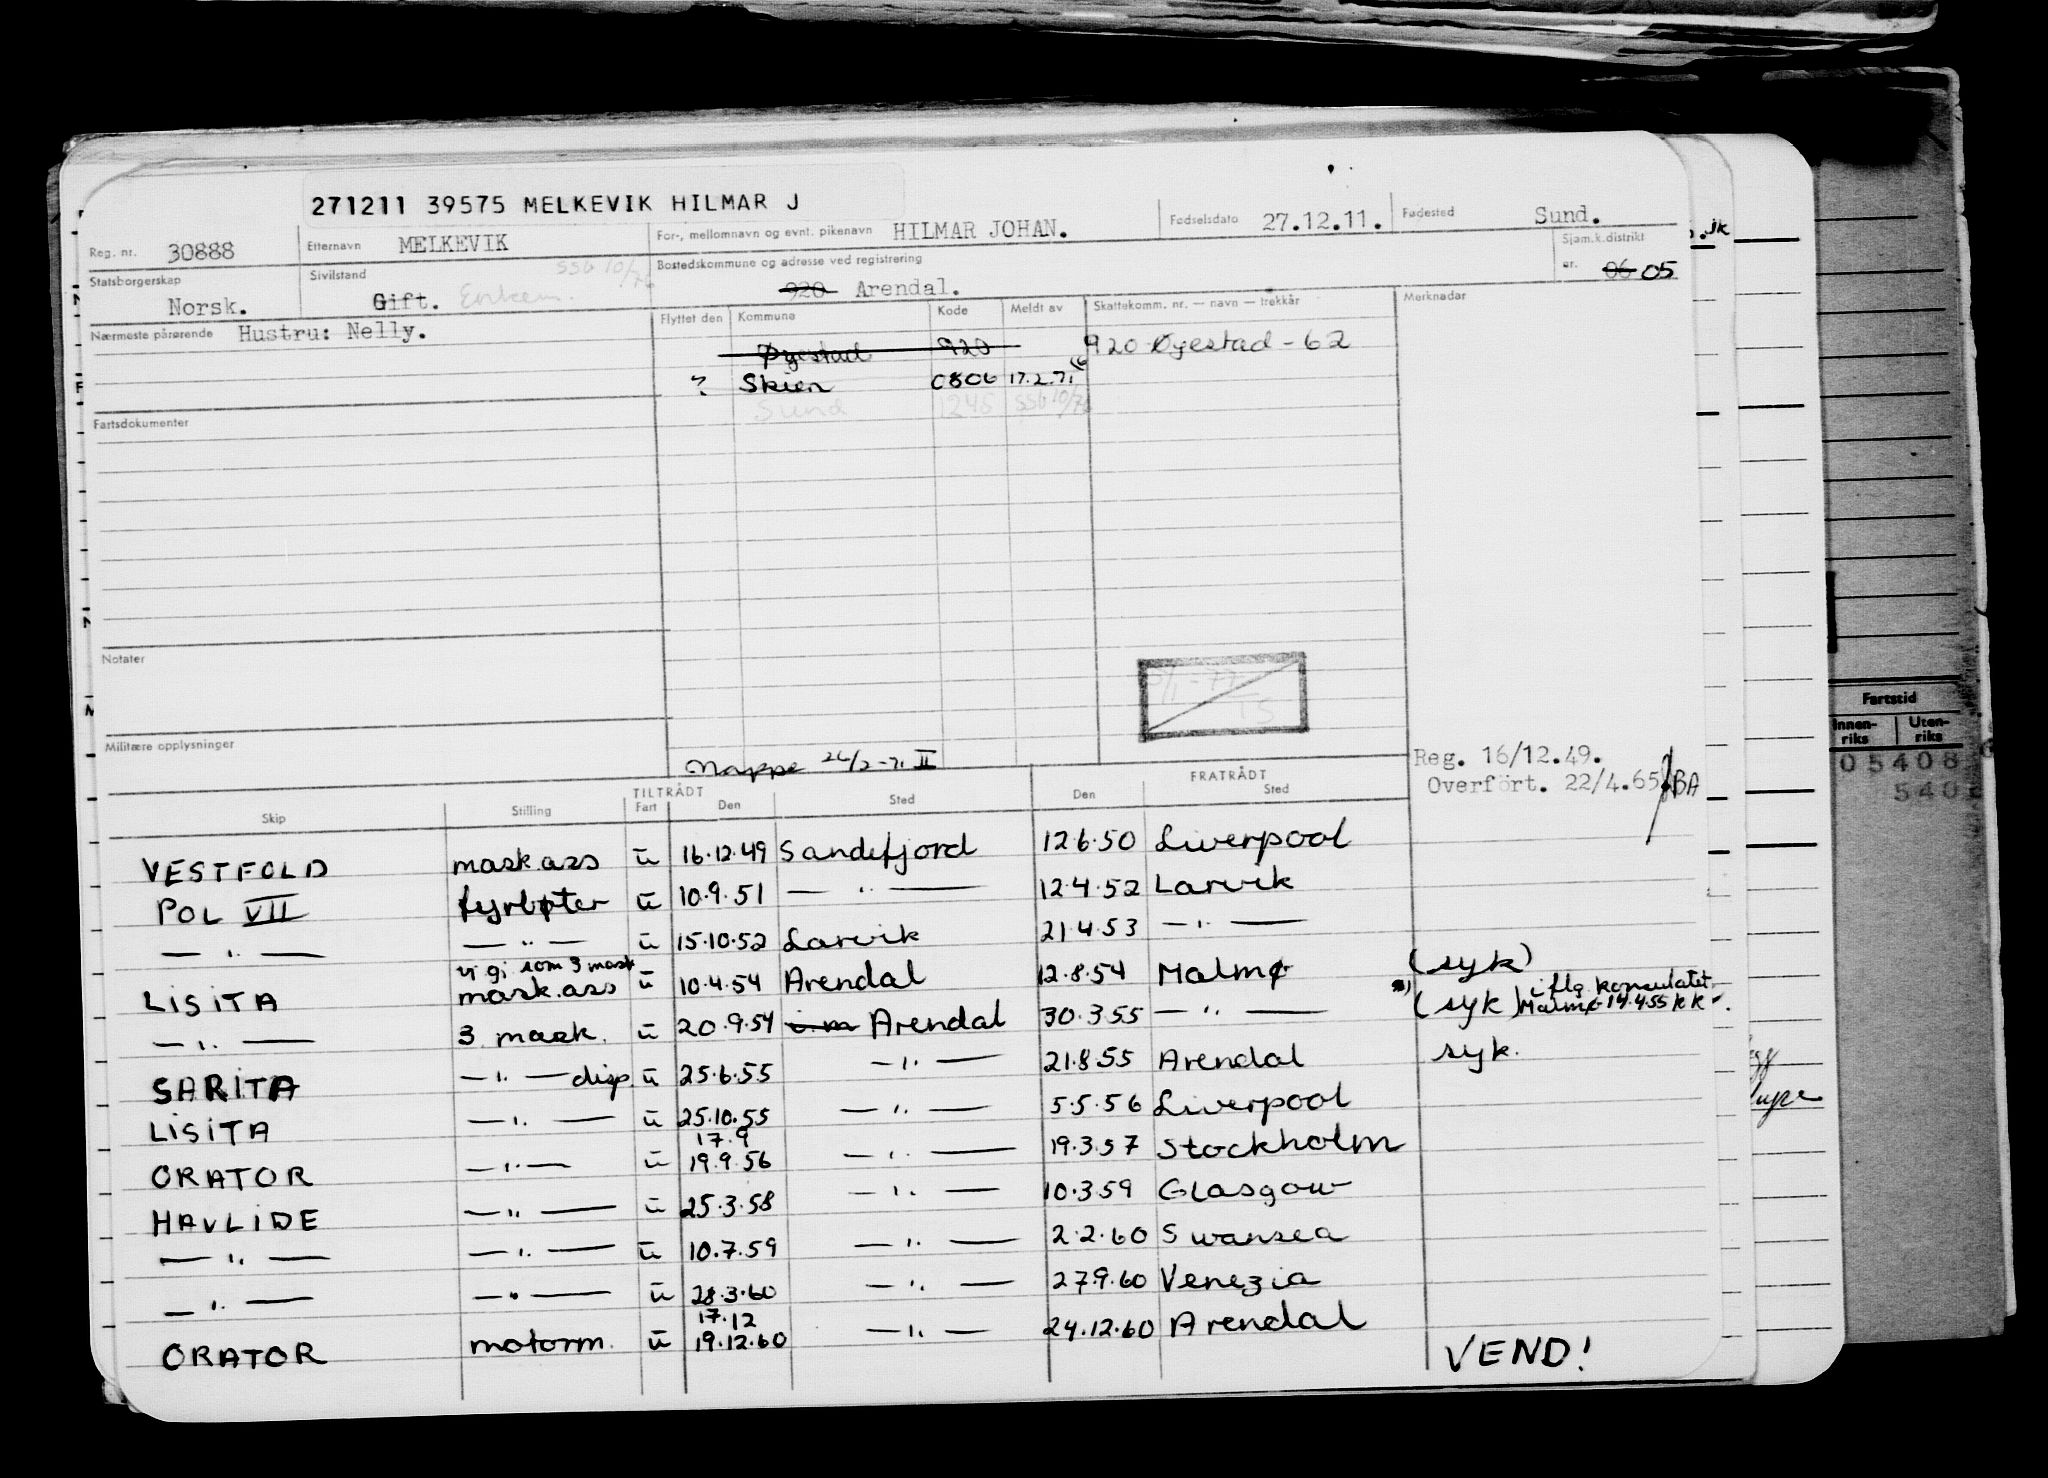 271211 39575 MELKEVIK HILMAR J
Reg. nr. 30888 Etternavn MELKEVIK For-, mellomnavn og evnt. pikenavn HILMAR JOHAN. Fødselsdato 27.12.11. Fødested Sund.
Statsborgerskap Norsk. Sivilstand Gift. Enkem. SSB 10/76 Bostedskommune og adresse ved registrering 920 Arendal. Sjøm.k.distrikt nr. 06 05
Nærmeste pårørende Hustru: Nelly. Flyttet den Kommune Kode Meldt av Skattekomm. nr. — navn — trekkår Merknader
Øyestad 920 920 Øyestad - 62
? Skien 0806 17.2.71
Sund 1245 SSB 10/76
Fartsdokumenter
Notater
Militære opplysninger
Mappe 24/2-71 II
Reg. 16/12.49.
Overført. 22/4.65 BA
TILTRÅDT FRATRÅDT
Skip Stilling Fart Den Sted Den Sted
VESTFOLD mask.ass u 16.12.49 Sandefjord 12.6.50 Liverpool
POL VII fyrbøter u 10.9.51 — " — 12.4.52 Larvik
— " — — " — u 15.10.52 Larvik 21.4.53 — " —
vi gj som 3 mask
LISITA mask.ass u 10.4.54 Arendal 12.8.54 Malmø (syk)
— " — 3 mask. u 20.9.54 i.m Arendal 30.3.55 — " — (syk) iflg. konsulatet
Malmø 14.4.55 KK
SARITA — " — disp. u 25.6.55 — " — 21.8.55 Arendal syk.
LISITA — " — u 25.10.55 — " — 5.5.56 Liverpool
17.9
ORATOR — " — u 19.9.56 — " — 19.3.57 Stockholm
HAVLIDE — " — u 25.3.58 — " — 10.3.59 Glasgow
— " — — " — u 10.7.59 — " — 2.2.60 Swansea
— " — — " — u 28.3.60 — " — 27.9.60 Venezia
17.12
ORATOR motorm. u 19.12.60 — " — 24.12.60 Arendal
VEND!
Fartstid
Innenriks Utenriks
05408
540